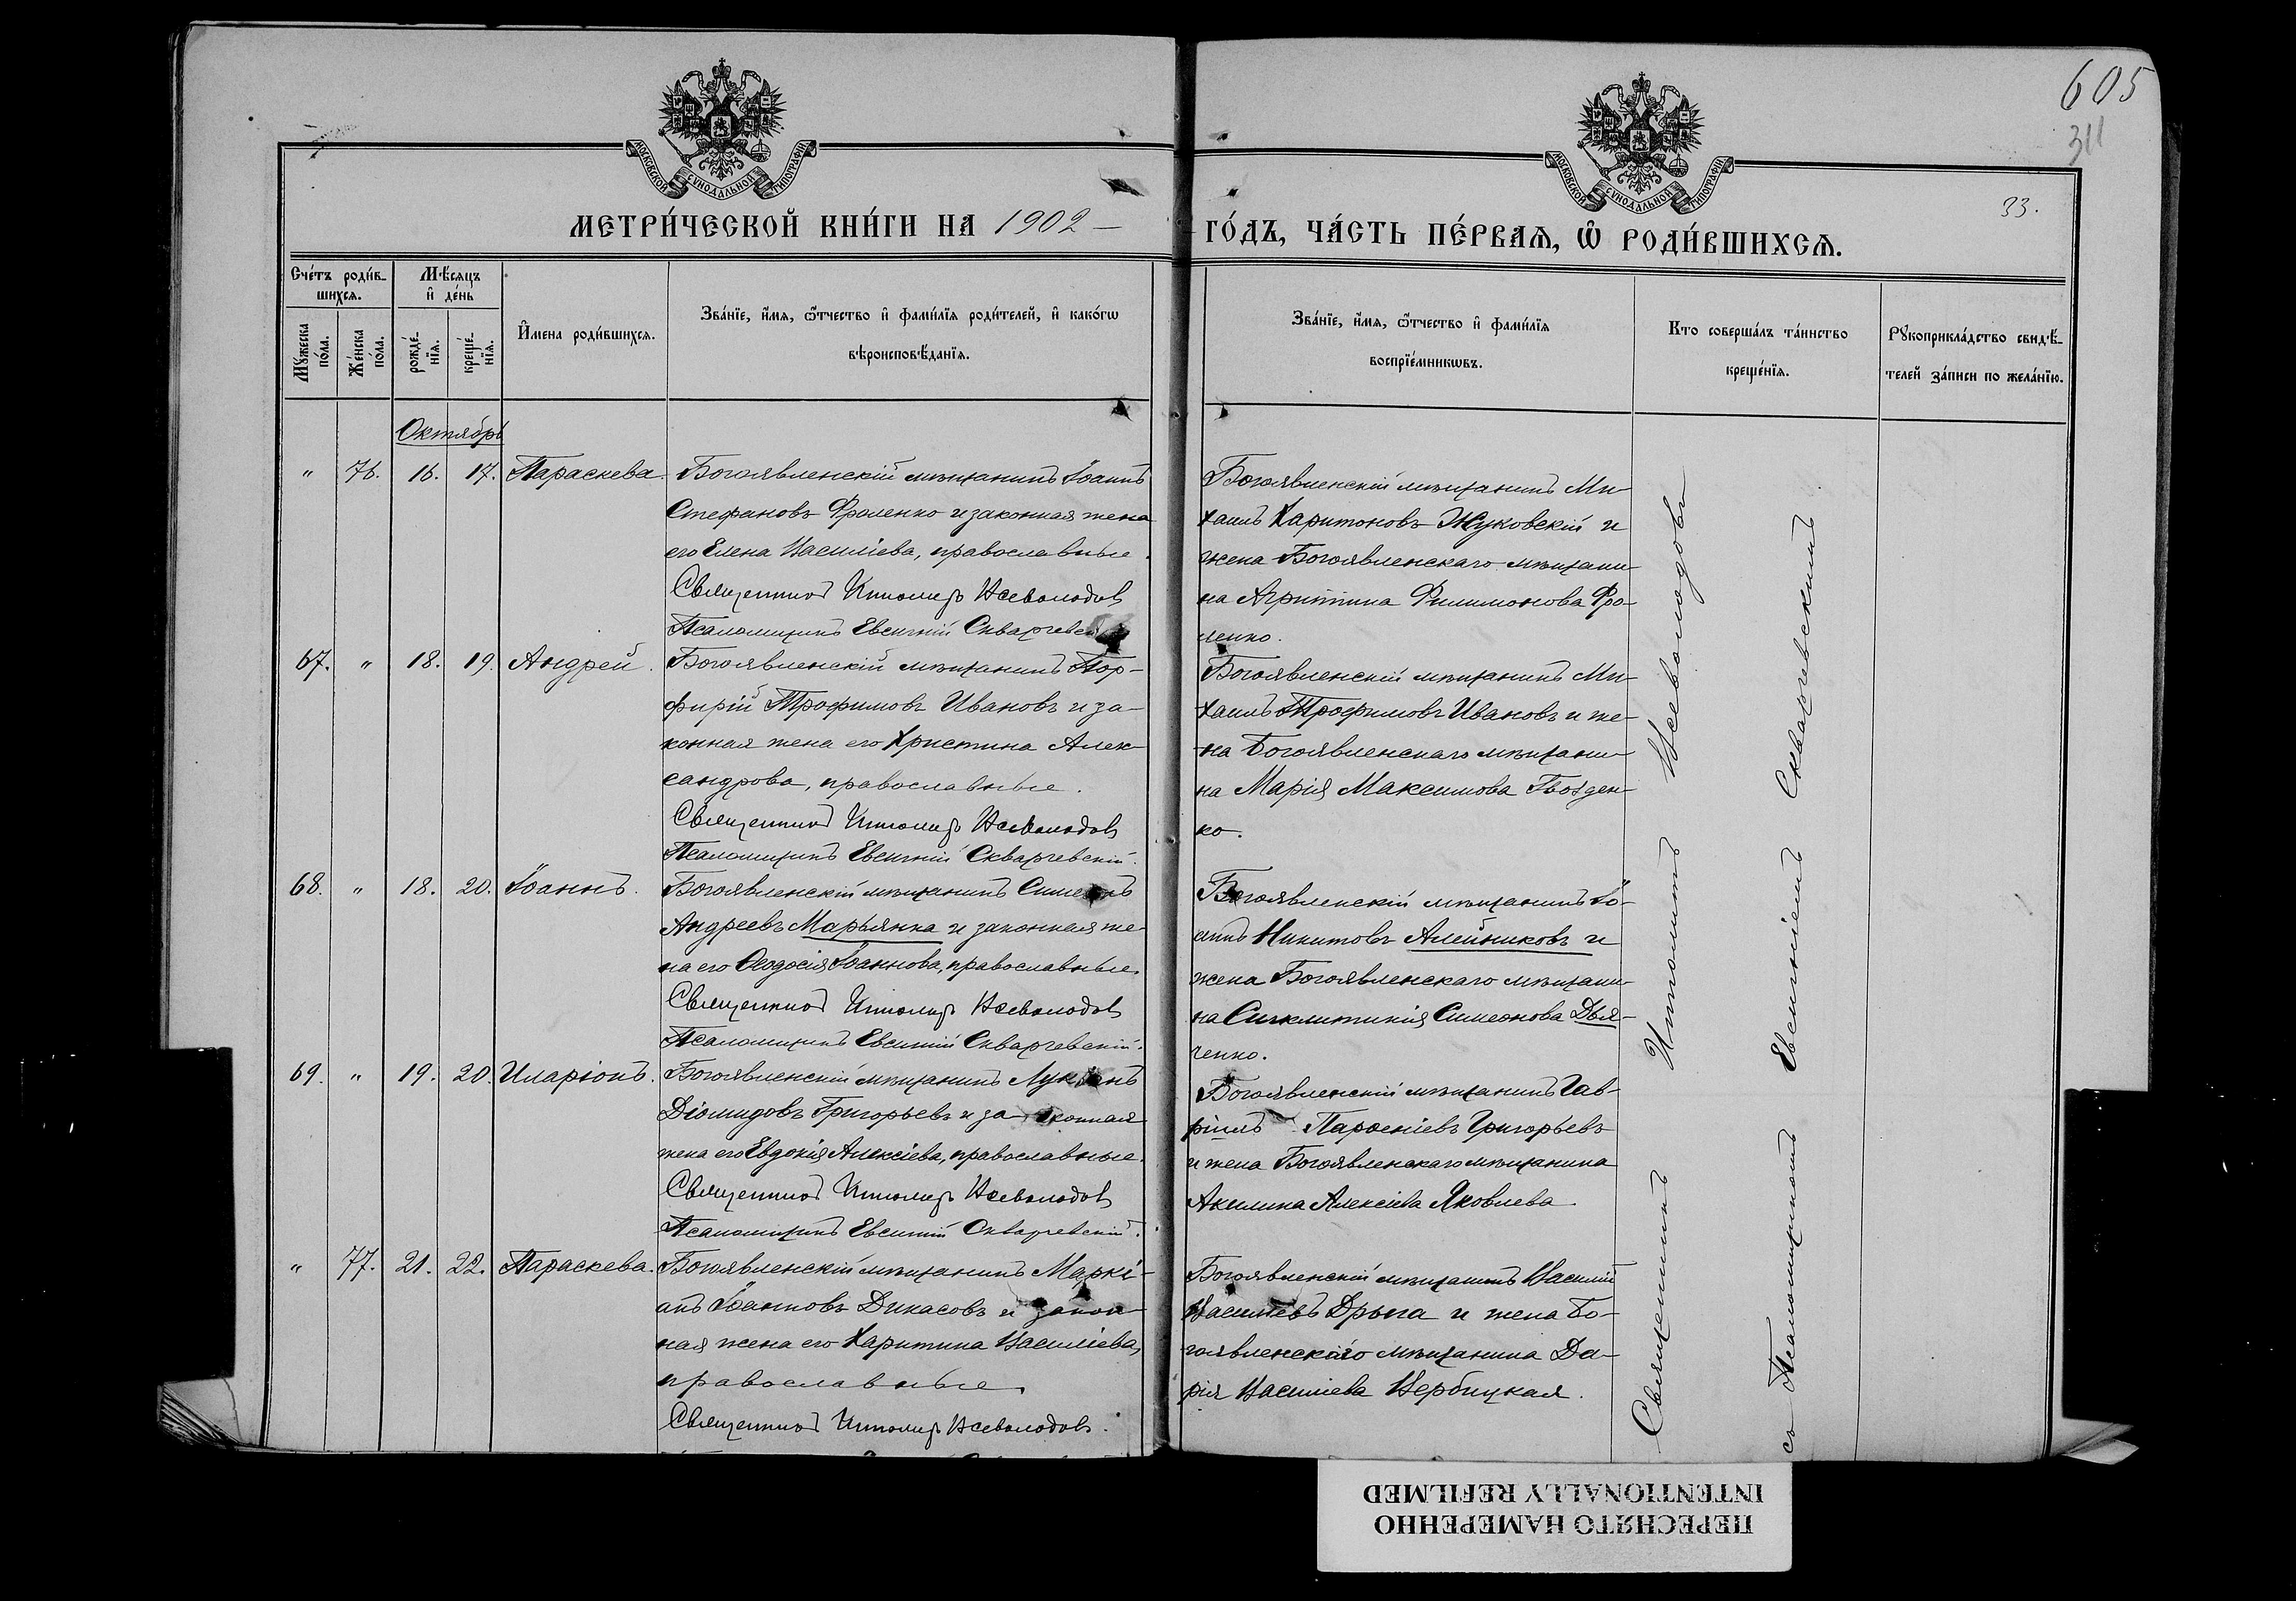 605
311
33.
МОСКОВСКОЙ СУНОДАЛЬНОЙ ТИПОГРАФІИ
МОСКОВСКОЙ СУНОДАЛЬНОЙ ТИПОГРАФІИ
МЕТРИ́ЧЕСКОЙ КНИ́ГИ НА 1902 –
ГО́ДЪ, ЧА́СТЬ ПЕ́РВАѦ, Ѡ РОДИ́ВШИХСѦ.
Сче́тъ роди́в-
шихсѧ.
Мꙋ́жеска по́ла.
Же́нска по́ла.
Мѣ́сѧцъ
и де́нь
рожде́-нїѧ.
креще́-нїѧ.
И́мена роди́вшихсѧ.
Зва́нїе, и́мѧ, ѻ́тчество и фами́лїѧ роди́телей, и како́гѡ
вѣроисповѣ́данїѧ.
Зва́нїе, и́мѧ, ѻ́тчество и фами́лїѧ
воспрїе́мникѡвъ.
Кто соверша́лъ та́инство
креще́нїѧ.
Рꙋкоприкла́дство свидѣ́-
телей за́писи по жела́нїю.
Октябрь
" 76. 16. 17. Параскева.
Богоявленскій мѣщанинъ Іоаннъ
Стефановъ Фроленко и законная жена
его Елена Василіева, православные.
Священникъ Ипполитъ Всеволодовъ
Псаломщикъ Евсигній Скваржевскій
Богоявленскій мѣщанинъ Ми-
хаилъ Харитоновъ Жуковскій и
жена Богоявленскаго мѣщани-
на Агрипина Филимонова Фро-
ленко.
67. " 18. 19. Андрей.
Богоявленскій мѣщанинъ Пор-
фирій Трофимовъ Ивановъ и за-
конная жена его Христина Алек-
сандрова, православные.
Священникъ Ипполитъ Всеволодовъ
Псаломщикъ Евсигній Скваржевскій.
Богоявленскій мѣщанинъ Ми-
хаилъ Трофимовъ Ивановъ и же-
на Богоявленскаго мѣщани-
на Марія Максимова Гвозден-
ко.
68. " 18. 20. Іоаннъ.
Богоявленскій мѣщанинъ Симеонъ
Андреевъ Марьянка и законная же-
на его Ѳеодосія Іоаннова, православные.
Священникъ Ипполитъ Всеволодовъ
Псаломщикъ Евсигній Скваржевскій.
Богоявленскій мѣщанинъ Іо-
аннъ Никитовъ Алейниковъ и
жена Богоявленскаго мѣщани-
на Сигклитикія Симеонова Дья-
ченко.
69. " 19. 20. Иларіонъ.
Богоявленскій мѣщанинъ Лукіанъ
Діомидовъ Григорьевъ и законная
жена его Евдокія Алексіева, православные.
Священникъ Ипполитъ Всеволодовъ
Псаломщикъ Евсигній Скваржевскій.
Богоявленскій мѣщанинъ Гав-
ріилъ Парѳеніевъ Григорьевъ
и жена Богоявленскаго мѣщанина
Акилина Алексіева Яковлева
" 77. 21. 22. Параскева.
Богоявленскій мѣщанинъ Маркі-
анъ Іоанновъ Дикасовъ и закон-
ная жена его Харитина Василіева,
православные
Священникъ Ипполитъ Всеволодовъ.
Богоявленскій мѣщанинъ Василій
Василіевъ Дрыга и жена Бо-
гоявленскаго мѣщанина Да-
рія Василіева Вербицкая.
Священникъ Ипполитъ Всеволодовъ
съ Псаломщикомъ Евсигніемъ Скваржевскимъ.
ПЕРЕСНЯТО НАМЕРЕННО
INTENTIONALLY REFILMED